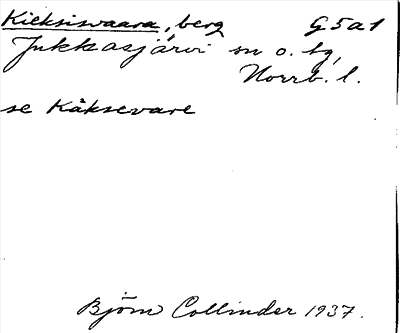 Kieksiwaara, berg G5a1
Jukkasjärvi sn o. tg,
Norrb. l.
se Kåksevare
Björn Collinder 1937.